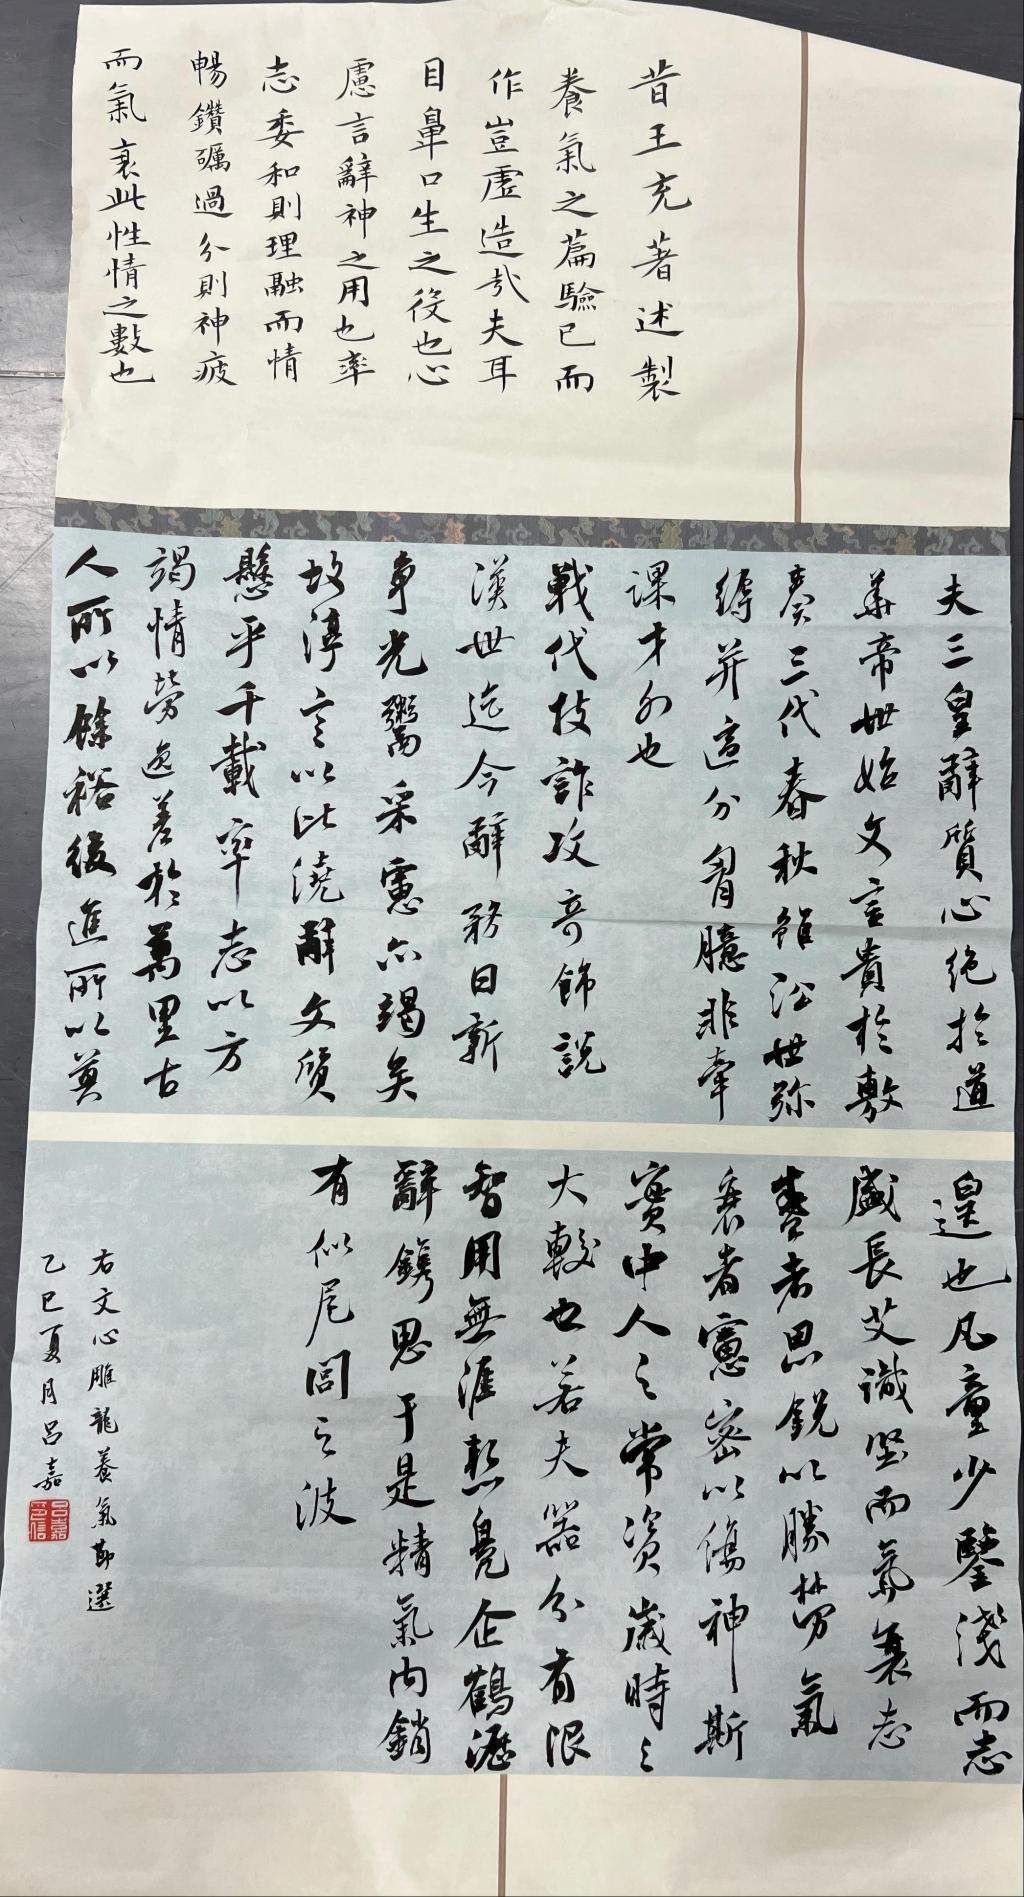 昔王充著述製
養氣之篇驗已而
作豈虛造哉夫耳
目鼻口生之役也心
慮言辭神之用也率
志委和則理融而情
暢鑽礪過分則神疲
而氣衰此性情之數也
夫三皇辭質心絕於道
華帝世始文言貴於敷
奏三代春秋雖沿世彌
縟并適分胷臆非牽
課才外也
戰代技詐攻奇飾說
漢世迄今辭務日新
爭光鬻采慮亦竭矣
故淳言以比澆辭文質
懸乎千載率志以方
竭情勞逸差於萬里古
人所以餘裕後進所以莫
遑也凡童少鑒淺而志
盛長艾識堅而氣衰志
盛者思銳以勝勞氣
衰者慮密以傷神斯
實中人之常資歲時之
大較也若夫器分有限
智用無涯慙鳧企鶴瀝
辭鎸思于是精氣內銷
有似尾閭之波
右文心雕龍養氣節選
乙巳夏月呂嘉
呂嘉
印信